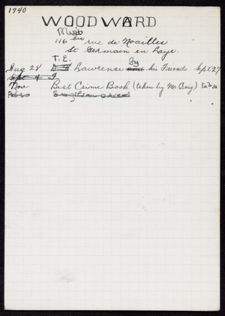 1940
WOODWARD
Miss
116 bis rue de Noailles
St Germain en Laye
T.E.
Aug 28 Lawrence by his Friends Sept 27
Nov Best Crime Book (taken by Mr Camy)